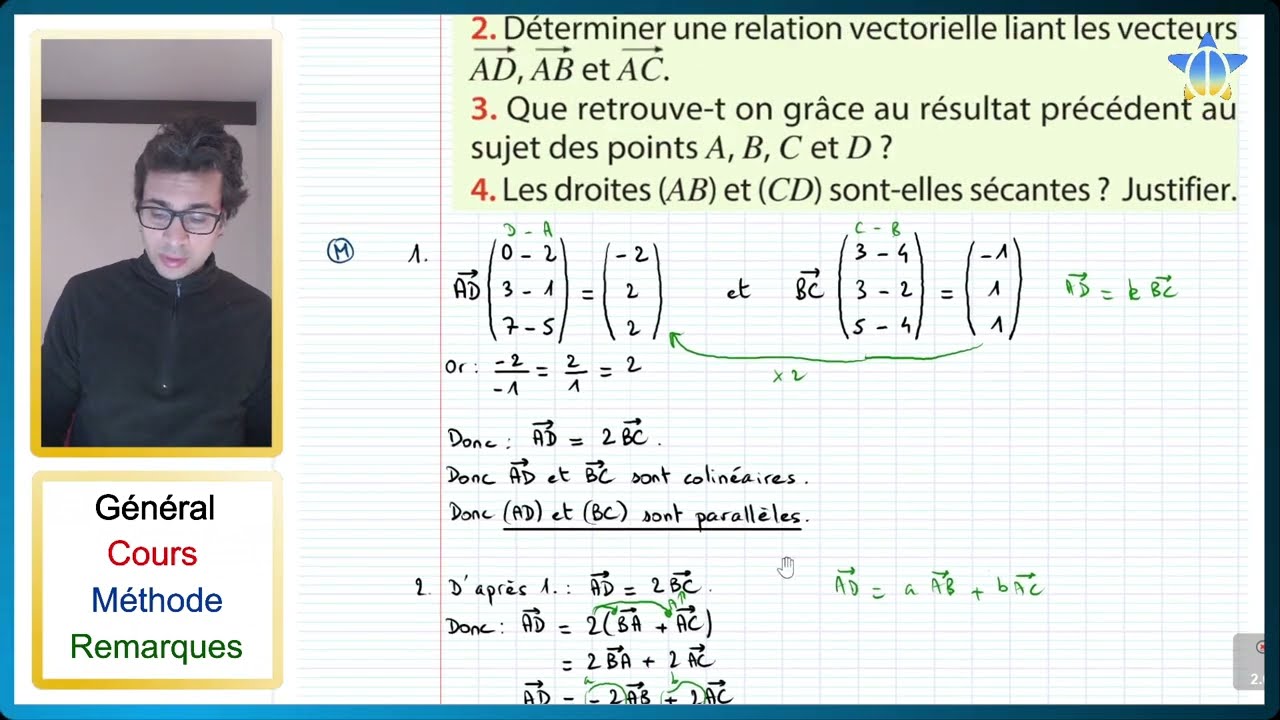 2. Déterminer une relation vectorielle liant les vecteurs
AD, AB et AC.
3. Que retrouve-t on grâce au résultat précédent au
sujet des points A, B, C et D ?
4. Les droites (AB) et (CD) sont-elles sécantes ? Justifier.
D - A
C - B
M
1. AD (0 - 2 3 - 1 7 - 5) = (-2 2 2) et BC (3 - 4 3 - 2 5 - 4) = (-1 1 1) AD = k BC
× 2
Or : -2/-1 = 2/1 = 2
Donc : AD = 2 BC .
Donc AD et BC sont colinéaires .
Donc (AD) et (BC) sont parallèles .
2. D'après 1. : AD = 2 BC . AD = a AB + b AC
Donc : AD = 2(BA + AC)
= 2 BA + 2 AC
a b
AD = -2 AB + 2 AC
Général
Cours
Méthode
Remarques